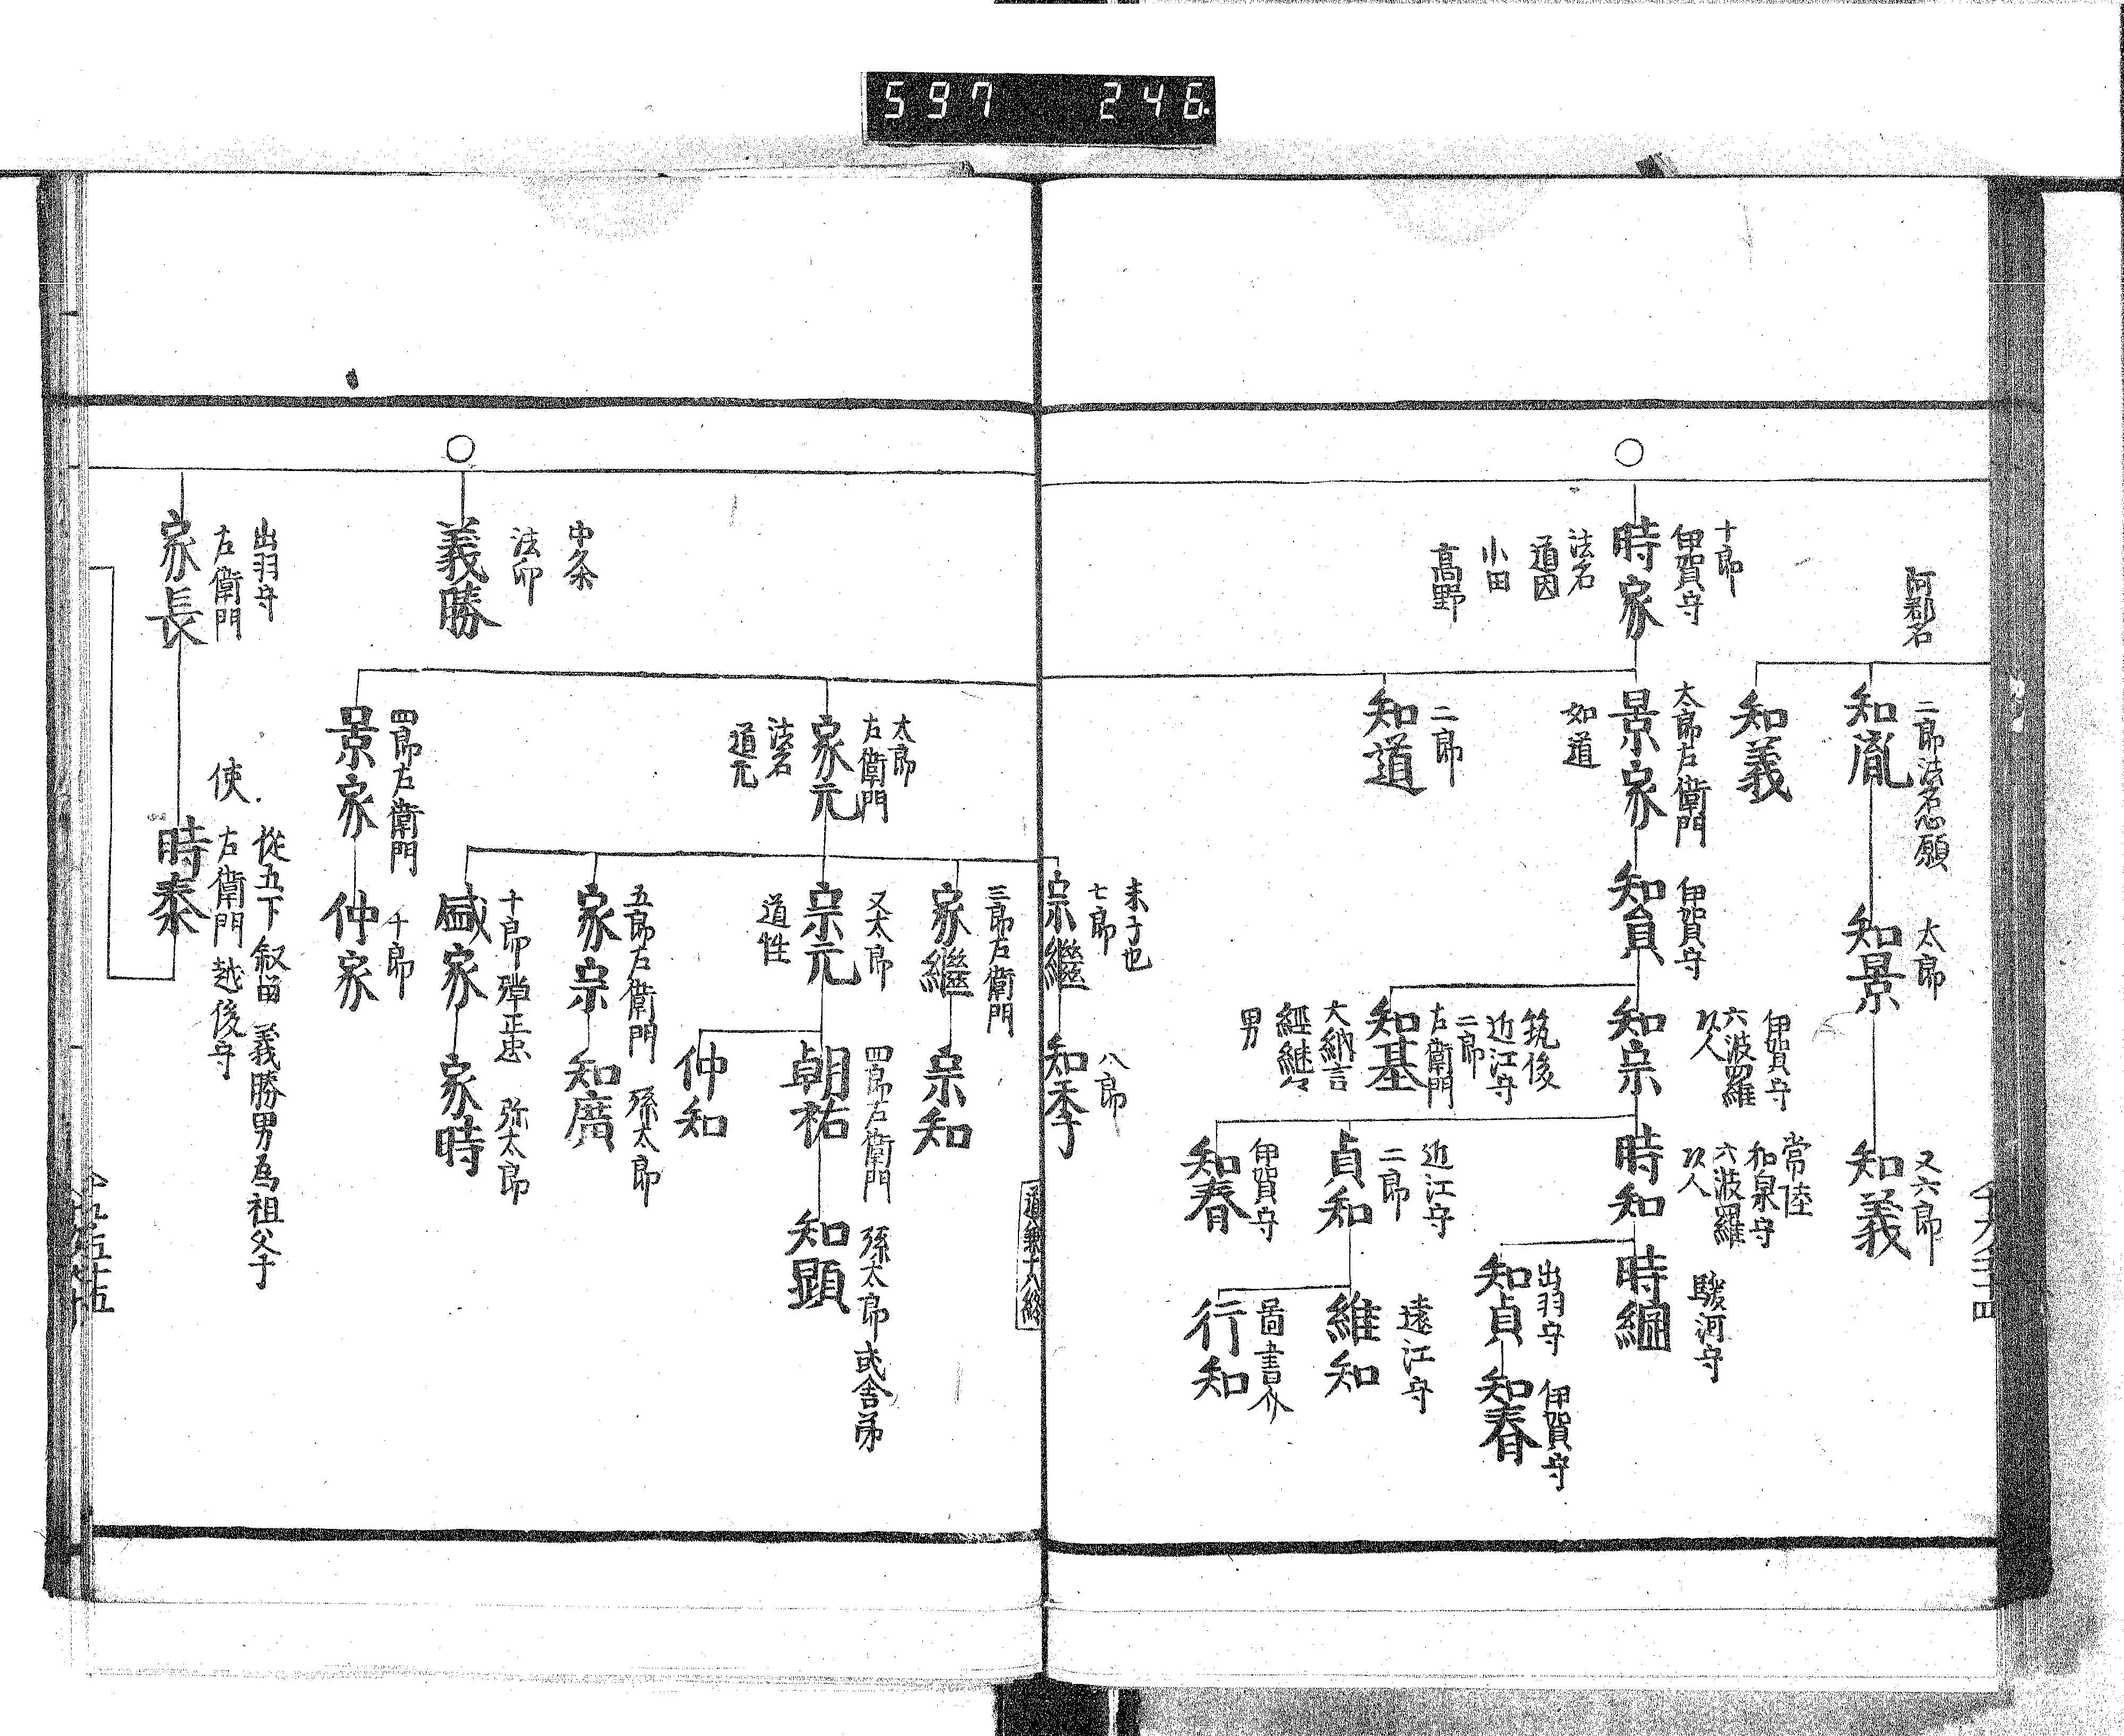 597 246
阿都石
二郎法名心願
知胤
太郎
知景
又六郎
知義
知義
十郎
伊賀守
時家
法名
道因
小田
高野
太郎左衛門
景家
如道
伊賀守
知員
伊賀守
六波羅
以人
知宗
常陸
和泉守
六波羅
以人
時知
駿河守
時綱
出羽守
知貞
伊賀守
知春
二郎
知道
筑後
近江守
二郎
左衛門
知基
大納言
経継々
男
近江守
二郎
貞知
遠江守
維知
図書介
行知
伊賀守
知春
末子也
七郎
宗継
八郎
知季
道兼十八終
三郎左衛門
家継
宗知
太郎
左衛門
家元
法名
道元
又太郎
宗元
道性
四郎左衛門
朝祐
孫太郎或舎弟
知顕
仲知
五郎左衛門
家宗
孫太郎
知広
十郎弾正忠
盛家
弥太郎
家時
四郎左衛門
景家
千郎
仲家
中条
法印
義勝
出羽守
左衛門
家長
従五下叙留 義勝男為祖父子
使 左衛門 越後守
時泰